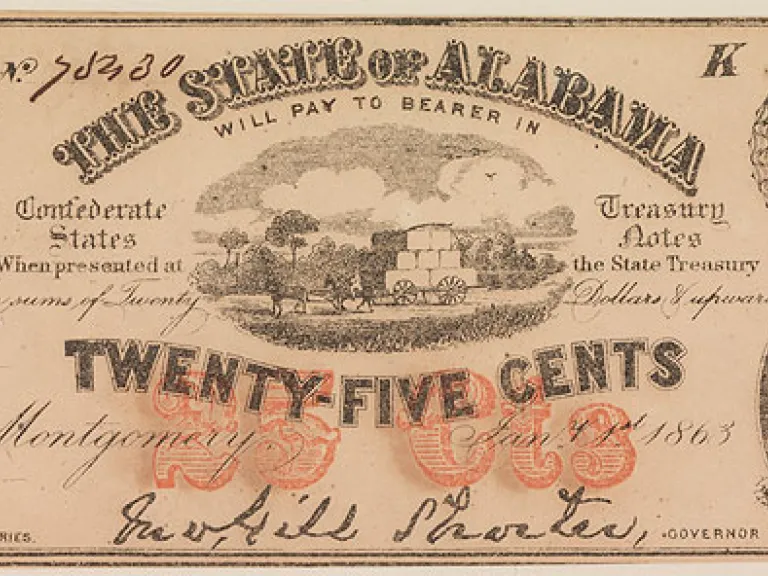 No. 78430
K
THE STATE OF ALABAMA
WILL PAY TO BEARER IN
Confederate States
Treasury Notes
When presented at
the State Treasury
sums of Twenty
Dollars & upwar
TWENTY-FIVE CENTS
25 Cts
Montgomery
Jany 1st 1863
Jno. Gill Shorter,
RIES.
GOVERNOR